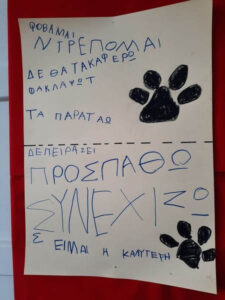 ΦΟΒΑΜΑΙ
ΝΤΡΕΠΟΜΑΙ
ΔΕ ΘΑ ΤΑ ΚΑΦΕΡΩ
ΤΑ ΠΑΡΑΤΑΩ
ΔΕ ΠΕΙΡΑΖΕΙ
ΠΡΟΣΠΑΘΩ
ΣΥΝΕΧΙΖΩ
ΕΙΜΑΙ Η ΚΑΛΥΤΕΡΗ